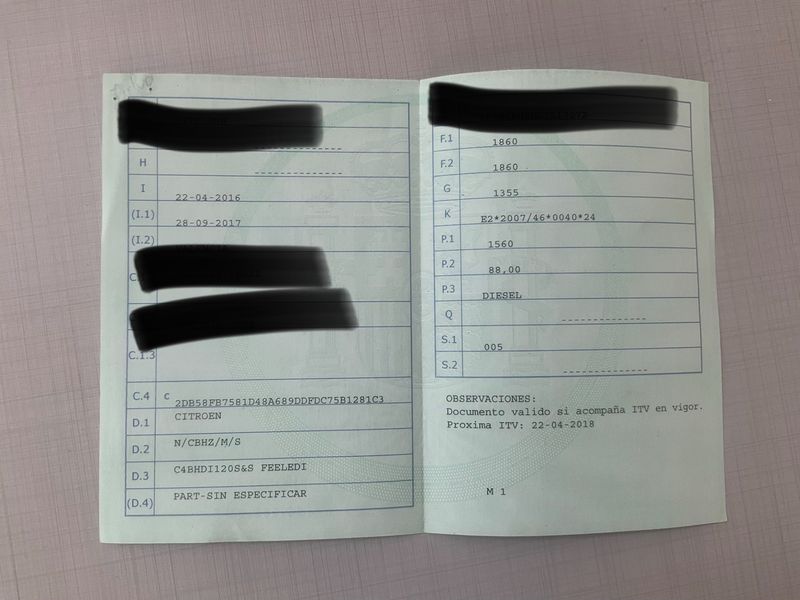 H
I 22-04-2016
(I.1) 28-09-2017
(I.2)
C.1.3
C.4 C 2DB58FB7581D48A689DDFDC75B1281C3
D.1 CITROEN
D.2 N/CBHZ/M/S
D.3 C4BHDI120S&S FEELEDI
(D.4) PART-SIN ESPECIFICAR
F.1 1860
F.2 1860
G 1355
K E2*2007/46*0040*24
P.1 1560
P.2 88,00
P.3 DIESEL
Q
S.1 005
S.2
OBSERVACIONES:
Documento valido si acompaña ITV en vigor.
Proxima ITV: 22-04-2018
M 1